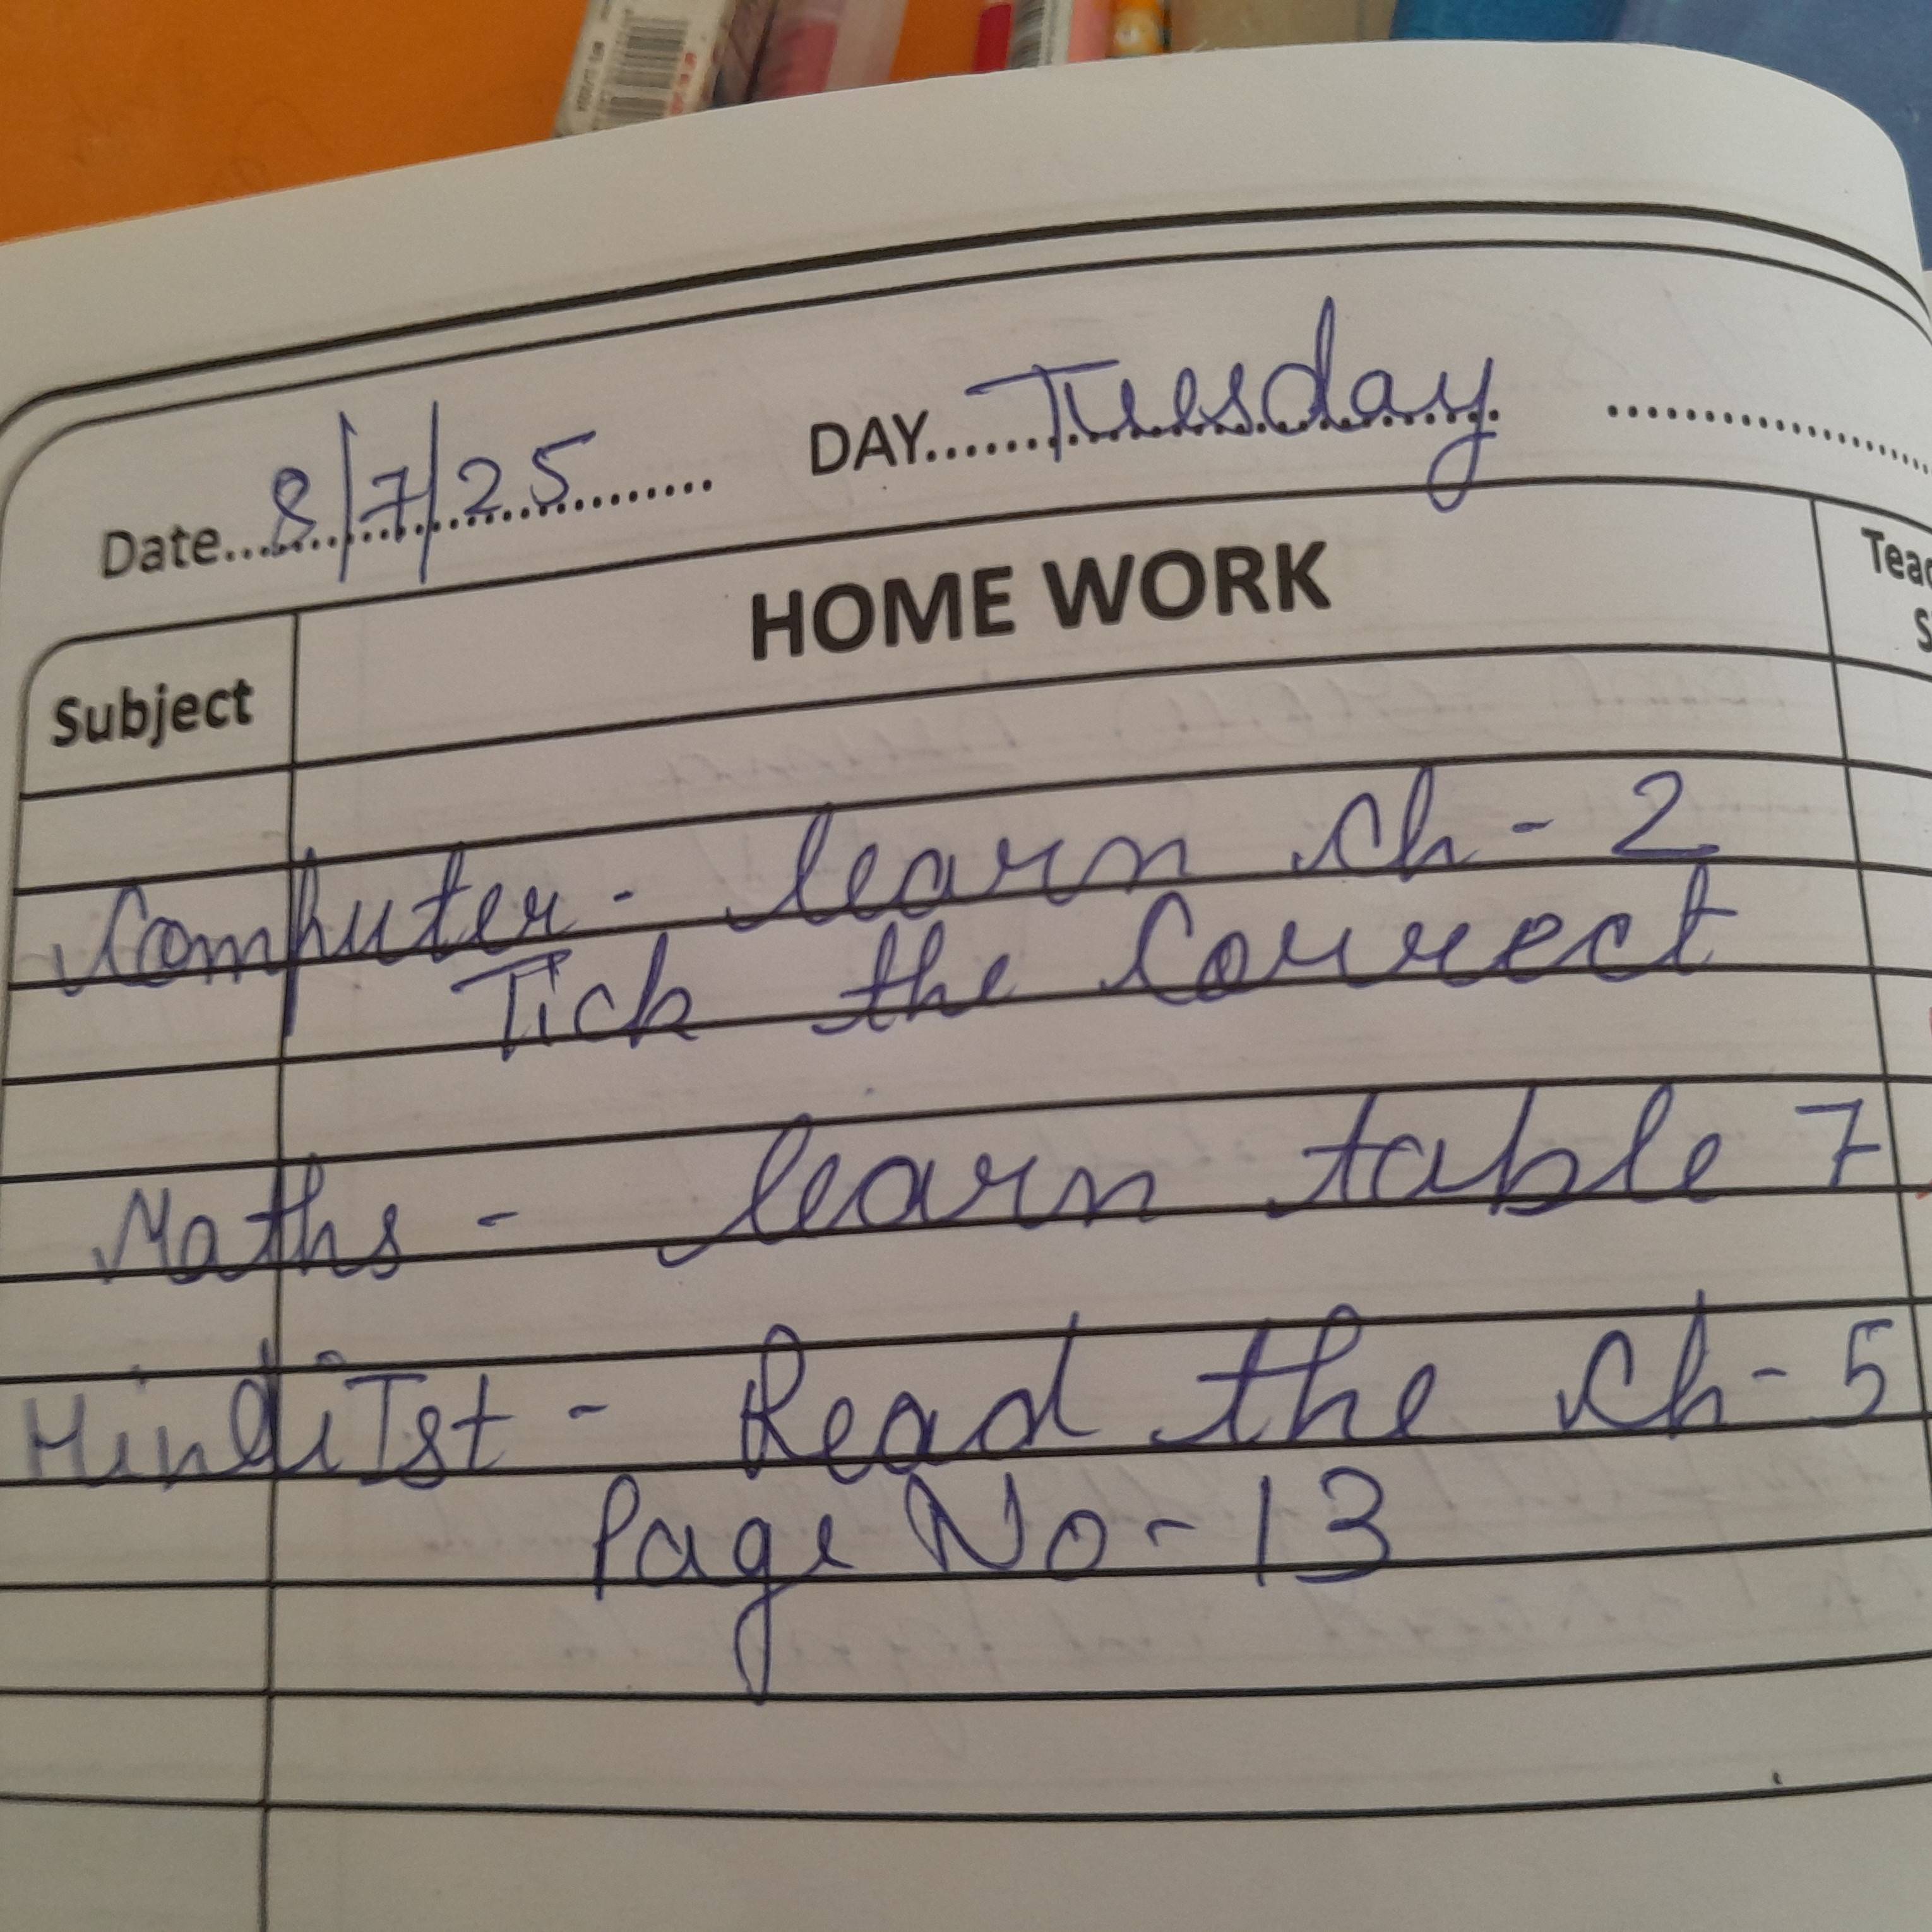 Date 8/7/25 DAY Tuesday
Subject HOME WORK
Computer - learn ch - 2
Tick the Correct
Maths - learn table 7
Hindi Ist - Read the ch - 5
Page No - 13